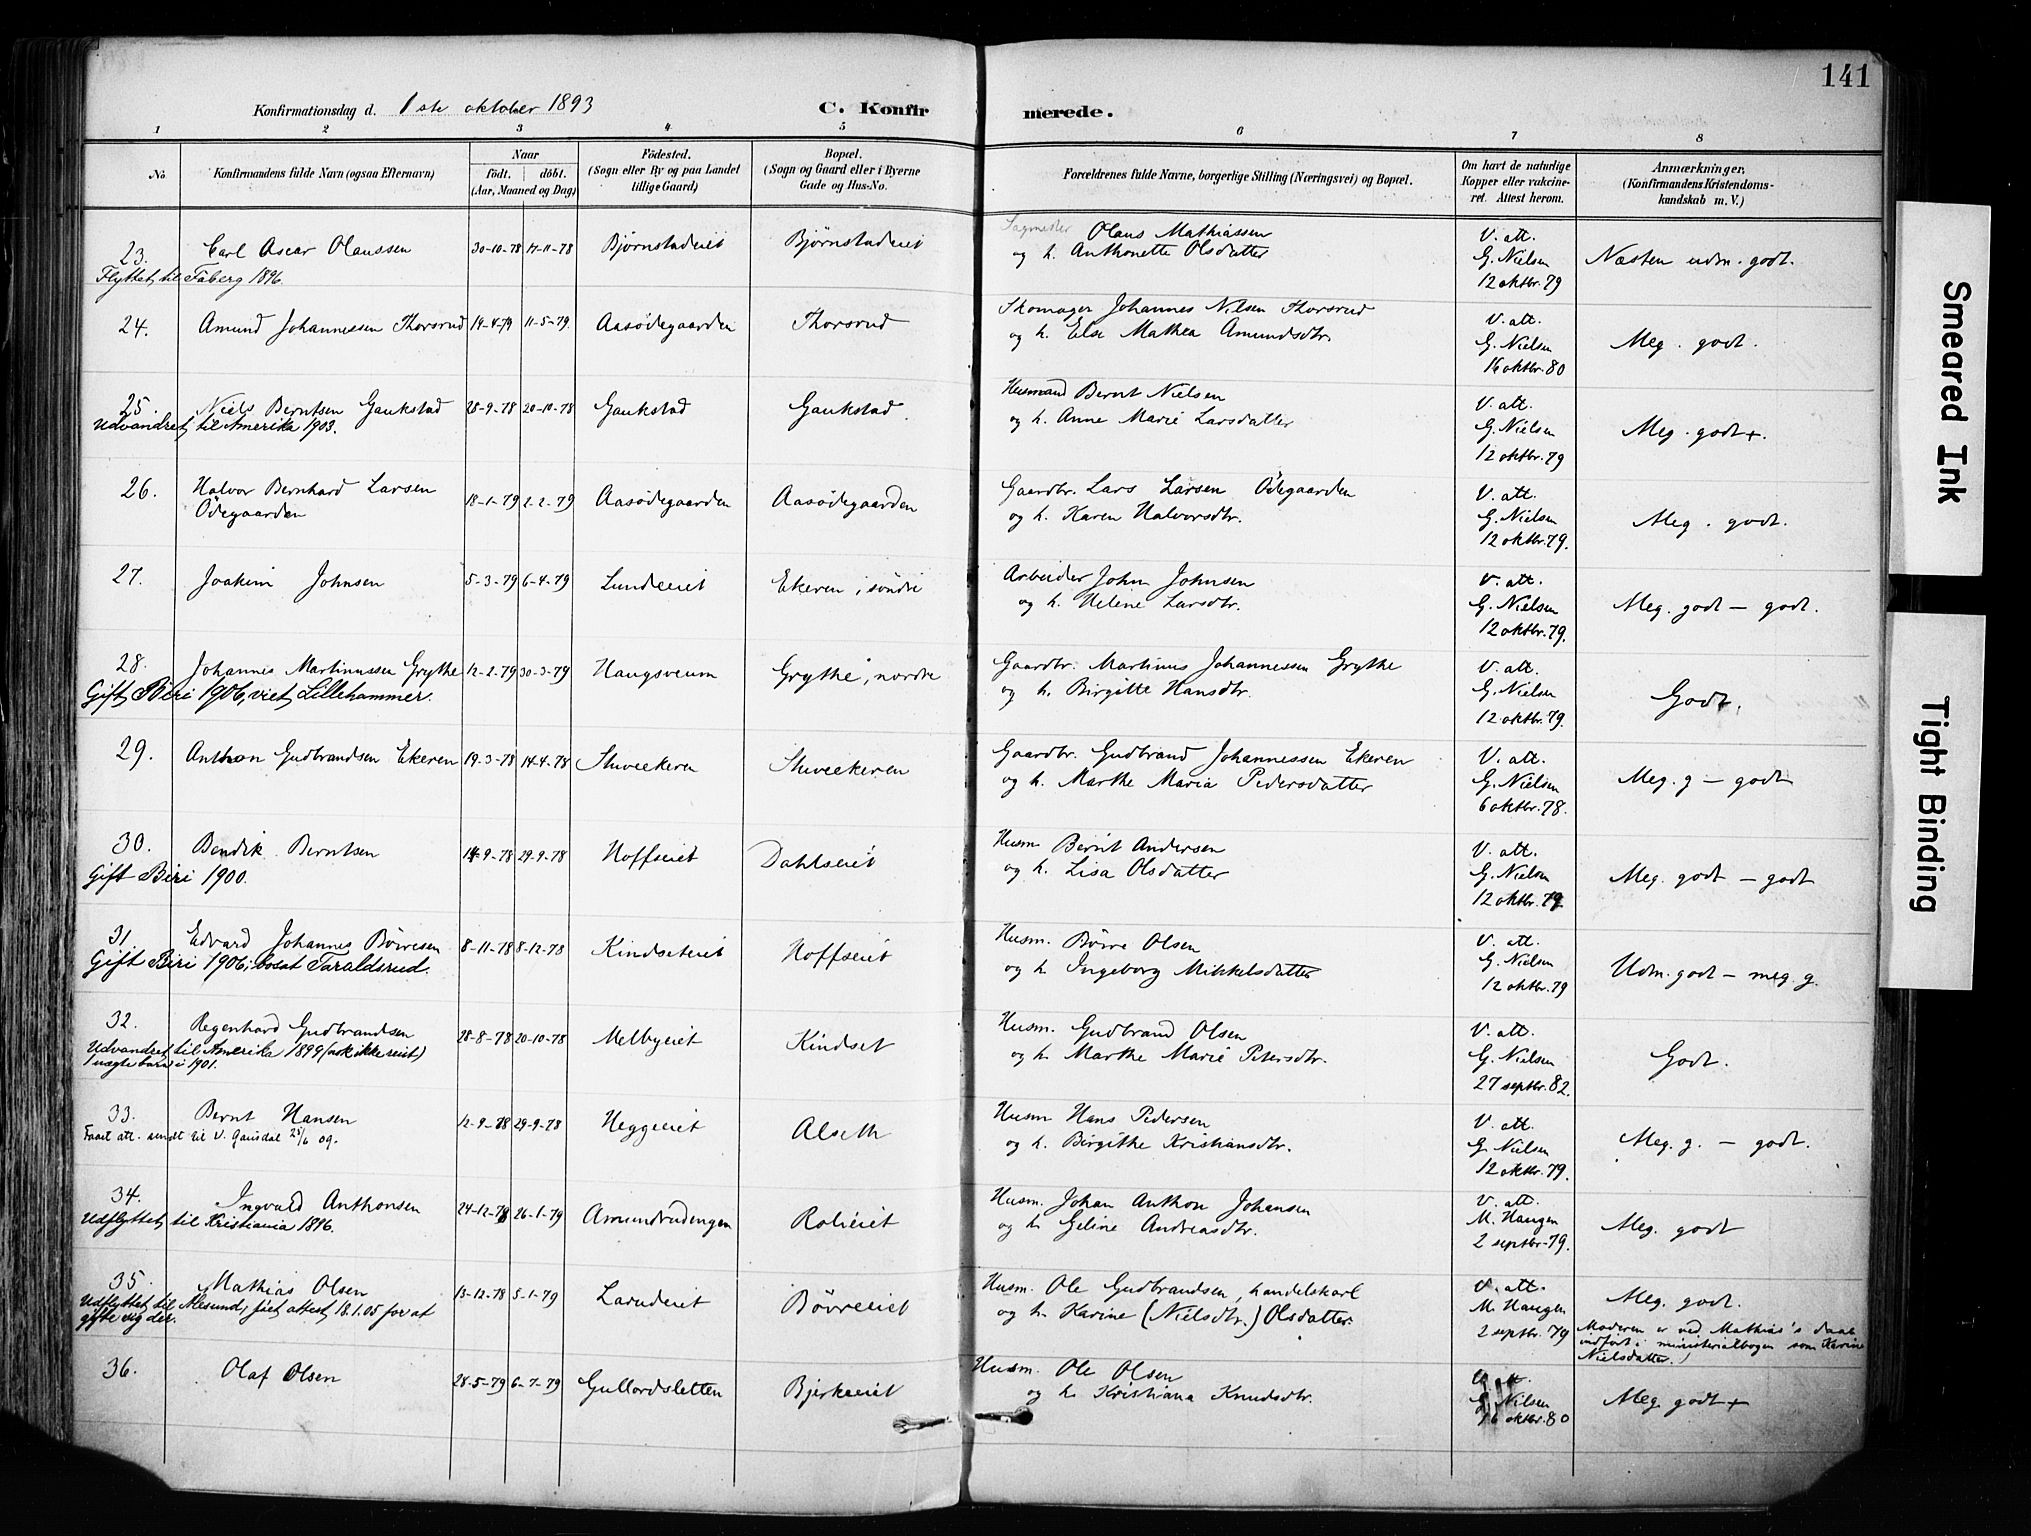 141
Konfirmationsdag d. 1ste oktober 1893
C. Konfirmerede.
1 2 3 4 5 6 7 8
No.
Konfirmandens fulde Navn (ogsaa Efternavn)
Naar
født. døbt.
(Aar, Maaned og Dag)
Fødested.
(Sogn eller By og paa Landet
tillige Gaard)
Bopæl.
(Sogn og Gaard eller i Byerne
Gade og Hus-No.
Forældrenes fulde Navne, borgerlige Stilling (Næringsvei) og Bopæl.
Om havt de naturlige
Kopper eller vakcine-
ret. Attest herom.
Anmærkninger.
(Konfirmandens Kristendoms-
kundskab m. V.)
23. Carl Oscar Olaussen 30-10-78 17-11-78 Bjørnstadeiet Bjørnstadeiet
Flyttet til Faaberg 1896.
Sagmester Olaus Mathiassen
og h. Anthonette Olsdatter
V. att.
G. Nielsen
12 oktbr. 79
Næsten udm. godt.
24. Amund Johannessen Thorsrud 14-4-79 11-5-79 Aasødegaarden Thorsrud
Skomager Johannes Nilsen Thorsrud
og h. Else Mathea Amundsdtr.
V. att.
G. Nielsen
16 oktbr. 80
Meg. godt.
25. Niels Berntsen Gaukstad 28-9-78 20-10-78 Gaukstad Gaukstad.
Udvandret til Amerika 1903.
Husmand Bernt Nielsen
og h. Anne Marie Larsdatter
V. att.
G. Nielsen
12 oktbr. 79
Meg. godt +.
26. Halvor Bernhard Larsen
Ödegaarden 18-1-79 2-2-79 Aasödegaarden Aasödegaarden
Gaardbr. Lars Larsen Ödegaarden
og h. Karen Halvorsdtr.
V. att.
G. Nielsen
12 oktbr. 79.
Meg. godt.
27. Joakim Johnsen 5-3-79 6-4-79 Lundeeiet Ekeren, söndre
Arbeider John Johnsen
og h. Helene Larsdtr.
V. att.
G. Nielsen
12 oktbr. 79.
Meg. godt – godt.
28. Johannes Martinussen Grythe 12-2-79 30-3-79 Haugsveum Grythe, nordre
Gift, Biri 1906, viet, Lillehammer.
Gaardbr. Martinus Johannessen Grythe
og h. Birgitte Hansdtr.
V. att.
G. Nielsen
12 oktbr. 79.
Godt.
29. Anthon Gudbrandsen Ekeren 19-3-78 14-4-78 Stuveekeren Stuveekeren
Gaardbr. Gudbrand Johannessen Ekeren
og h. Marthe Maria Pedersdatter
V. att.
G. Nielsen
6 oktbr. 78.
Meg. g – godt
30. Bendik Berntsen 14-9-78 29-9-78 Hoffseiet Dahlseiet
Gift Biri 1900.
Husm. Bernt Andersen
og h. Lisa Olsdatter
V. att.
G. Nielsen
12 oktbr. 79.
Meg. godt – godt
31. Edvard Johannes Börresen 8-11-78 8-12-78 Kindseteiet Hoffseiet
Gift Biri 1906; bosat Taraldsrud.
Husm. Börre Olsen
og h. Ingeborg Mikkelsdatter
V. att.
G. Nielsen
12 oktbr. 79
Udm. godt – meg. g.
32. Regenhard Gudbrandsen 28-8-78 20-10-78 Melbyeiet Kindset
Udvandret til Amerika 1899 (nok ikke reist)
1 uægte barn i 1901.
Husm. Gudbrand Olsen
og h. Marthe Marie Petersdtr.
V. att.
G. Nielsen
27 septbr. 82.
Godt.
33. Bernt Hansen 12-9-78 29-9-78 Heggeeiet Alseth
Faaet att. sendt til V. Gausdal 25/6 09.
Husm Hans Pedersen
og h. Birgithe Kristiansdtr.
V. att.
G. Nielsen
12 oktbr. 79.
Meg. g. – godt.
34. Ingvald Anthonsen 24-12-78 26-1-79 Amundrudengen Rolieiet
Udflyttet til Kristiania 1896.
Husm. Johan Anthon Johansen
og h. Geline Andreasdtr.
V. att.
M. Haugen
2 septbr. 79.
Meg. godt
35. Mathias Olsen 13-12-78 5-1-79 Larudeiet Bövreeiet
Udflyttet til Alesund, fået attest 18.1.05 for at
gifte sig der.
Husm. Ole Gudbrandsen, handelskarl
og h. Karine (Nielsdtr.) Olsdatter.
V. att.
M. Haugen
2 septbr. 79
Meg. godt.
Moderen er ved Mathias's daab
indført i ministerialbogen som Karine
Nielsdatter.
36. Olaf Olsen 28-5-79 6-7-79 Gullordsletten Bjerkeeiet
Husm. Ole Olsen
og h. Kristiana Knudsdtr.
G. Nilsen
16 oktbr. 80
Meg. godt +
Smeared Ink
Tight Binding